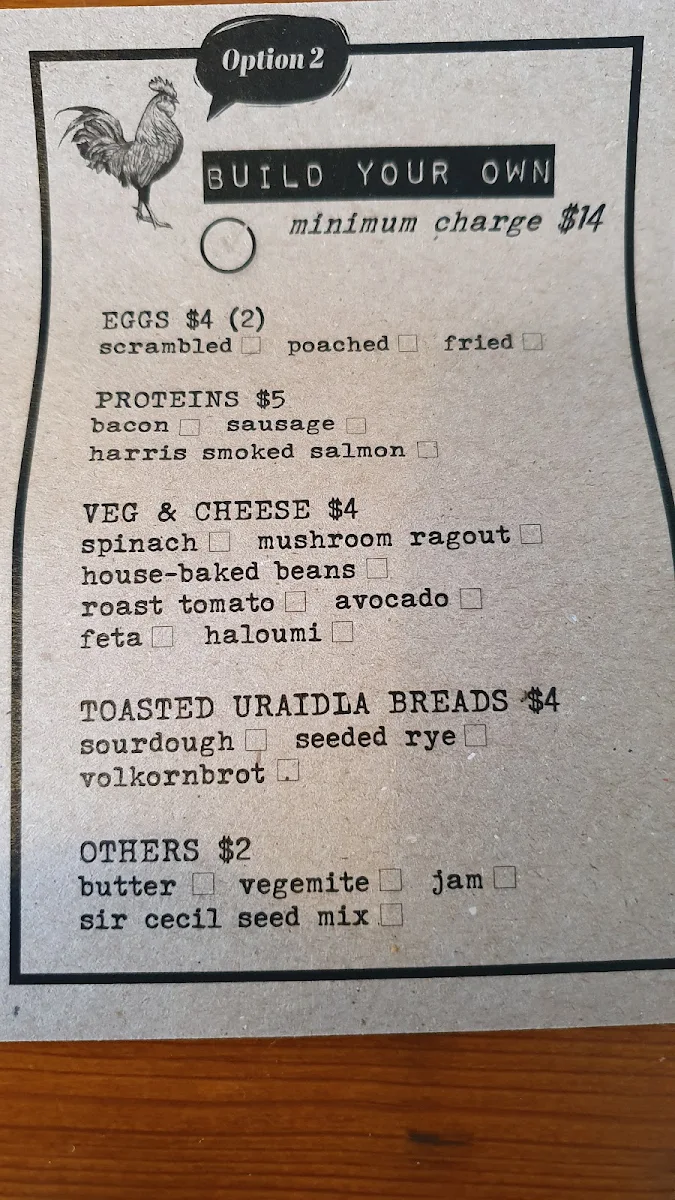 Option 2
BUILD YOUR OWN
minimum charge $14
EGGS $4 (2)
scrambled poached fried
PROTEINS $5
bacon sausage
harris smoked salmon
VEG & CHEESE $4
spinach mushroom ragout
house-baked beans
roast tomato avocado
feta haloumi
TOASTED URAIDLA BREADS $4
sourdough seeded rye
volkornbrot
OTHERS $2
butter vegemite jam
sir cecil seed mix